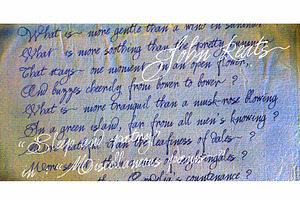 What is more gentle than a wind in summer
What is more soothing than the pretty
John Keats
That stays one moment in an open flower,
And buzzes cheerily from bower to bower?
What is more tranquil than a musk-rose blowing
In a green island, far from all men's knowing?
"Sleep and Poetry"
healthful than the leafiness of dales?
in "Miscellaneous
More nightingales?
Cordelia's countenance?